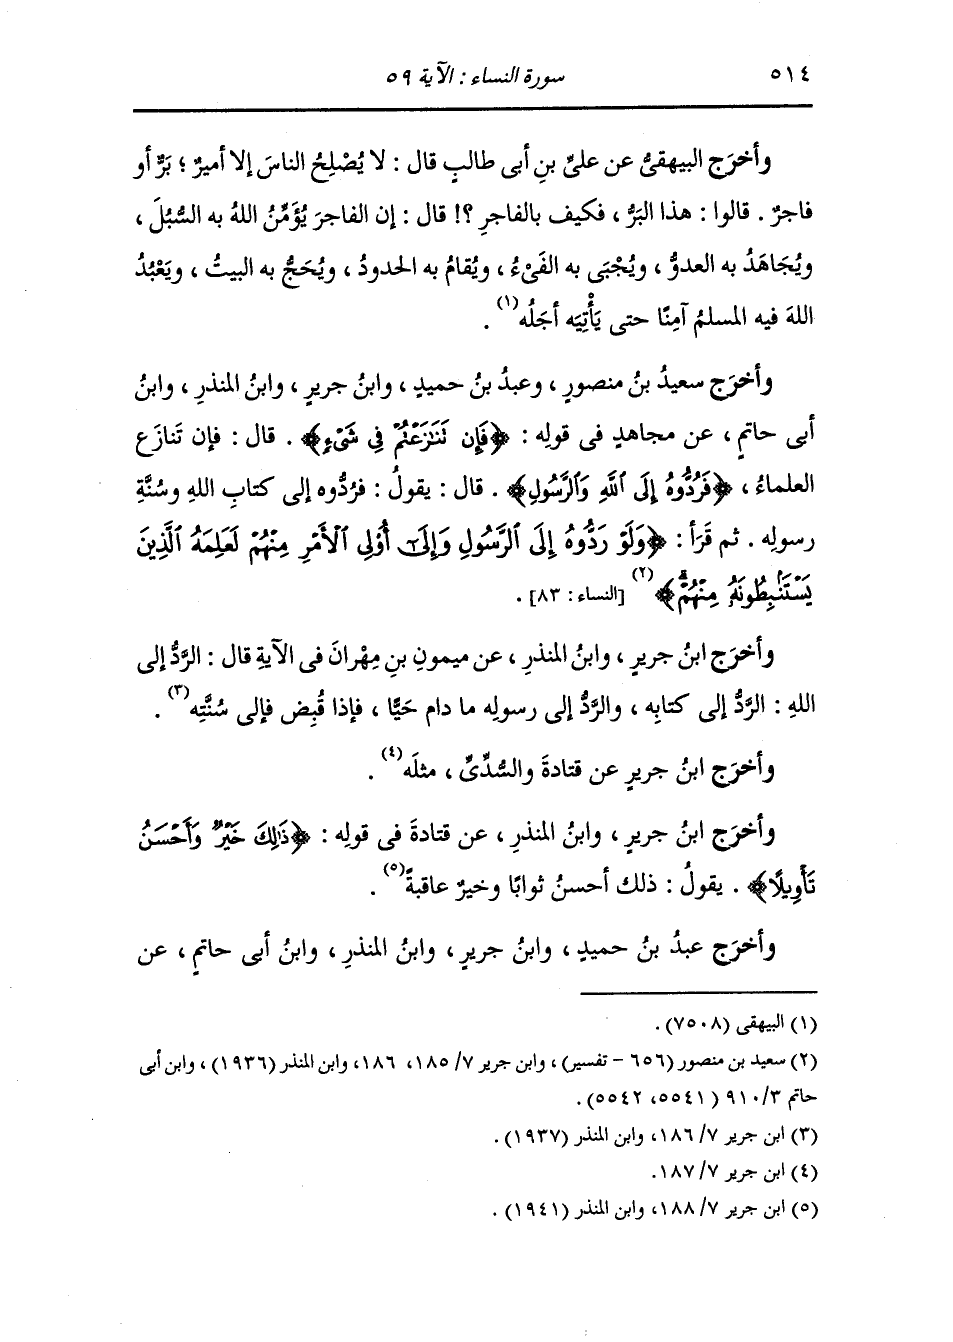 ٥١٤ سورة النساء : الآية ٥٩
وأخرَج البيهقىُّ عن علىِّ بنِ أبى طالبٍ قال : لا يُصْلِحُ الناسَ إلا أميرٌ ؛ بَرٌّ أو
فاجرٌ . قالوا : هذا البَرُّ ، فكيف بالفاجرِ ؟! قال : إن الفاجرَ يُؤَمِّنُ اللهُ به السُّبُلَ ،
ويُجَاهَدُ به العدوُّ ، ويُجْبَى به الفَىْءُ ، ويُقامُ به الحدودُ ، ويُحَجُّ به البيتُ ، ويَعْبُدُ
اللهَ فيه المسلمُ آمِنًا حتى يَأْتِيَه أجَلُه(١) .
وأخرَج سعيدُ بنُ منصورٍ ، وعبدُ بنُ حميدٍ ، وابنُ جريرٍ ، وابنُ المنذرِ ، وابنُ
أبى حاتمٍ ، عن مجاهدٍ فى قولِه : ﴿فَإِن تَنَٰزَعْتُمْ فِى شَىْءٍ﴾ . قال : فإن تَنازَع
العلماءُ ، ﴿فَرُدُّوهُ إِلَى ٱللَّهِ وَٱلرَّسُولِ﴾ . قال : يقولُ : فرُدُّوه إلى كتابِ اللهِ وسُنَّةِ
رسولِه . ثم قَرَأ : ﴿وَلَوْ رَدُّوهُ إِلَى ٱلرَّسُولِ وَإِلَىٰٓ أُوْلِى ٱلْأَمْرِ مِنْهُمْ لَعَلِمَهُ ٱلَّذِينَ
يَسْتَنۢبِطُونَهُۥ مِنْهُمْۗ﴾(٢) [النساء : ٨٣] .
وأخرَج ابنُ جريرٍ ، وابنُ المنذرِ ، عن ميمونِ بنِ مِهْرانَ فى الآيةِ قال : الرَّدُّ إلى
اللهِ : الرَّدُّ إلى كتابِه ، والرَّدُّ إلى رسولِه ما دام حَيًّا ، فإذا قُبِض فإلى سُنَّتِه(٣) .
وأخرَج ابنُ جريرٍ عن قتادةَ والسُّدِّىِّ ، مثلَه(٤) .
وأخرَج ابنُ جريرٍ ، وابنُ المنذرِ ، عن قتادةَ فى قولِه : ﴿ذَٰلِكَ خَيْرٌ وَأَحْسَنُ
تَأْوِيلًا﴾ . يقولُ : ذلك أحسنُ ثوابًا وخيرٌ عاقبةً(٥) .
وأخرَج عبدُ بنُ حميدٍ ، وابنُ جريرٍ ، وابنُ المنذرِ ، وابنُ أبى حاتمٍ ، عن
(١) البيهقى (٧٥٠٨) .
(٢) سعيد بن منصور (٦٥٦ - تفسير) ، وابن جرير ٧/ ١٨٥، ١٨٦، وابن المنذر (١٩٣٦) ، وابن أبى
حاتم ٣/ ٩١٠ (٥٥٤١، ٥٥٤٢) .
(٣) ابن جرير ٧/ ١٨٦، وابن المنذر (١٩٣٧) .
(٤) ابن جرير ٧/ ١٨٧.
(٥) ابن جرير ٧/ ١٨٨، وابن المنذر (١٩٤١) .